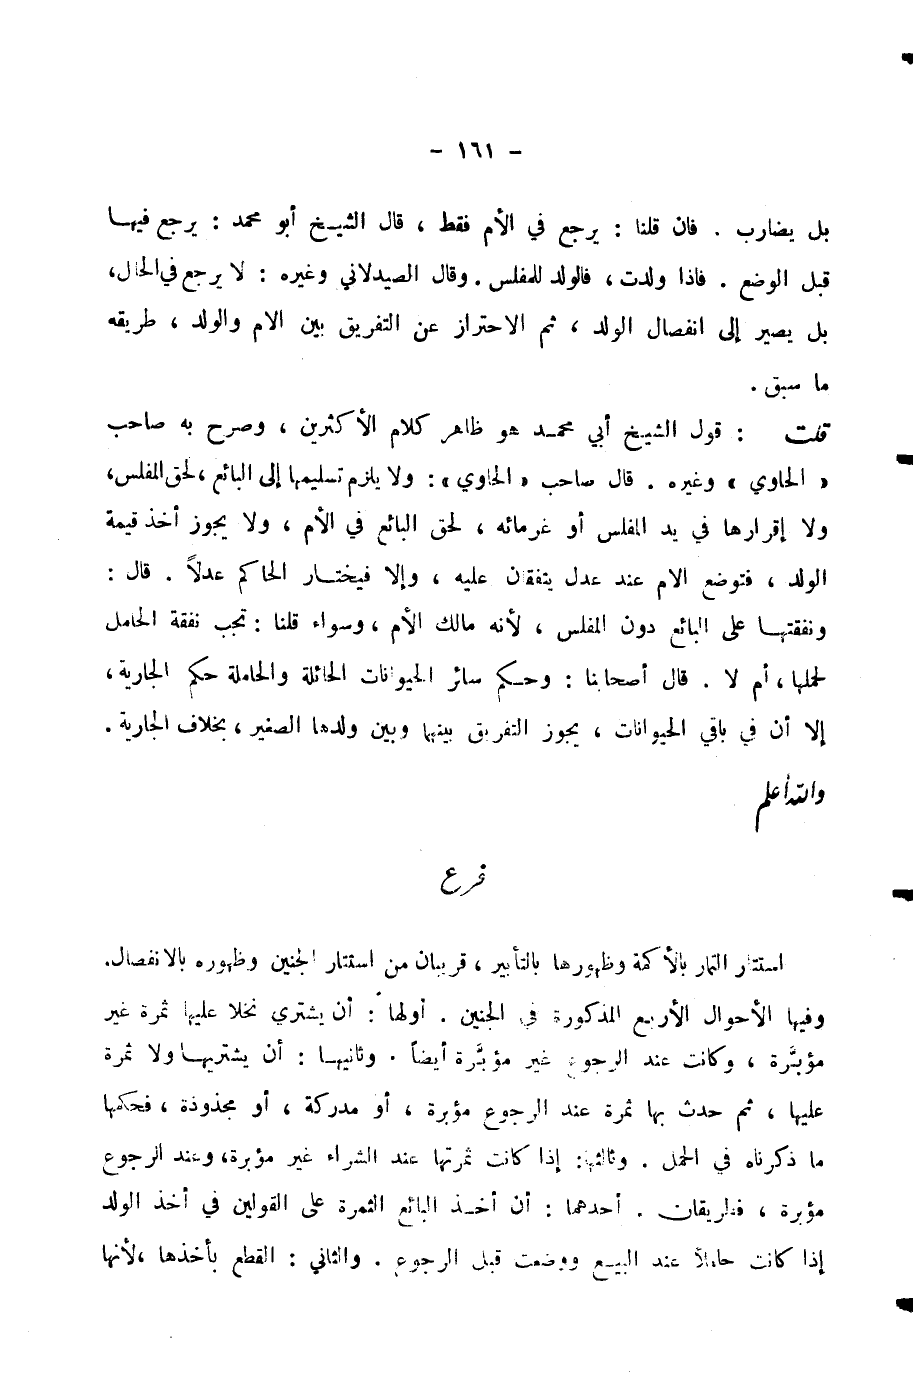 - ١٦١ -
بل يضارب . فان قلنا : يرجع في الأم فقط ، قال الشيخ أبو محمد : يرجع فيها
قبل الوضع . فاذا ولدت ، فالولد للمفلس . وقال الصيدلاني وغيره : لا يرجع في الحال،
بل يصير إلى انفصال الولد ، ثم الاحتراز عن التفريق بين الام والولد ، طريقه
ما سبق .
قلت : قول الشيخ أبي محمد هو ظاهر كلام الأكثرين ، وصرح به صاحب
« الحاوي » وغيره . قال صاحب « الحاوي » : ولا يلزم تسليمها إلى البائع ، لحق المفلس،
ولا إقرارها في يد المفلس أو غرمائه ، لحق البائع في الأم ، ولا يجوز أخذ قيمة
الولد ، فتوضع الام عند عدل يتفقان عليه ، وإلا فيختار الحاكم عدلاً . قال :
ونفقتها على البائع دون المفلس ، لأنه مالك الأم ، وسواء قلنا : تجب نفقة الحامل
لحملها ، أم لا . قال أصحابنا : وحكم سائر الحيوانات الحائلة والحاملة حكم الجارية ،
إلا أن في باقي الحيوانات ، يجوز التفريق بينها وبين ولدها الصغير ، بخلاف الجارية .
والله أعلم
فرع
استتار الثمار بالأكمة وظهورها بالتأبير ، قريبان من استتار الجنين وظهوره بالانفصال.
وفيها الأحوال الأربع المذكورة في الجنين . أولها : أن يشتري نخلا عليها ثمرة غير
مؤبَّرة ، وكانت عند الرجوع غير مؤبَّرة أيضاً . وثانيها : أن يشتريها ولا ثمرة
عليها ، ثم حدث بها ثمرة عند الرجوع مؤبرة ، أو مدركة ، أو مجذوذة ، فحكمها
ما ذكرناه في الحمل . وثالثها: إذا كانت ثمرتها عند الشراء غير مؤبرة، وعند الرجوع
مؤبرة ، فطريقان . أحدهما : أن أخذ البائع الثمرة على القولين في أخذ الولد
إذا كانت حاملاً عند البيع ووضعت قبل الرجوع . والثاني : القطع بأخذها ، لأنها